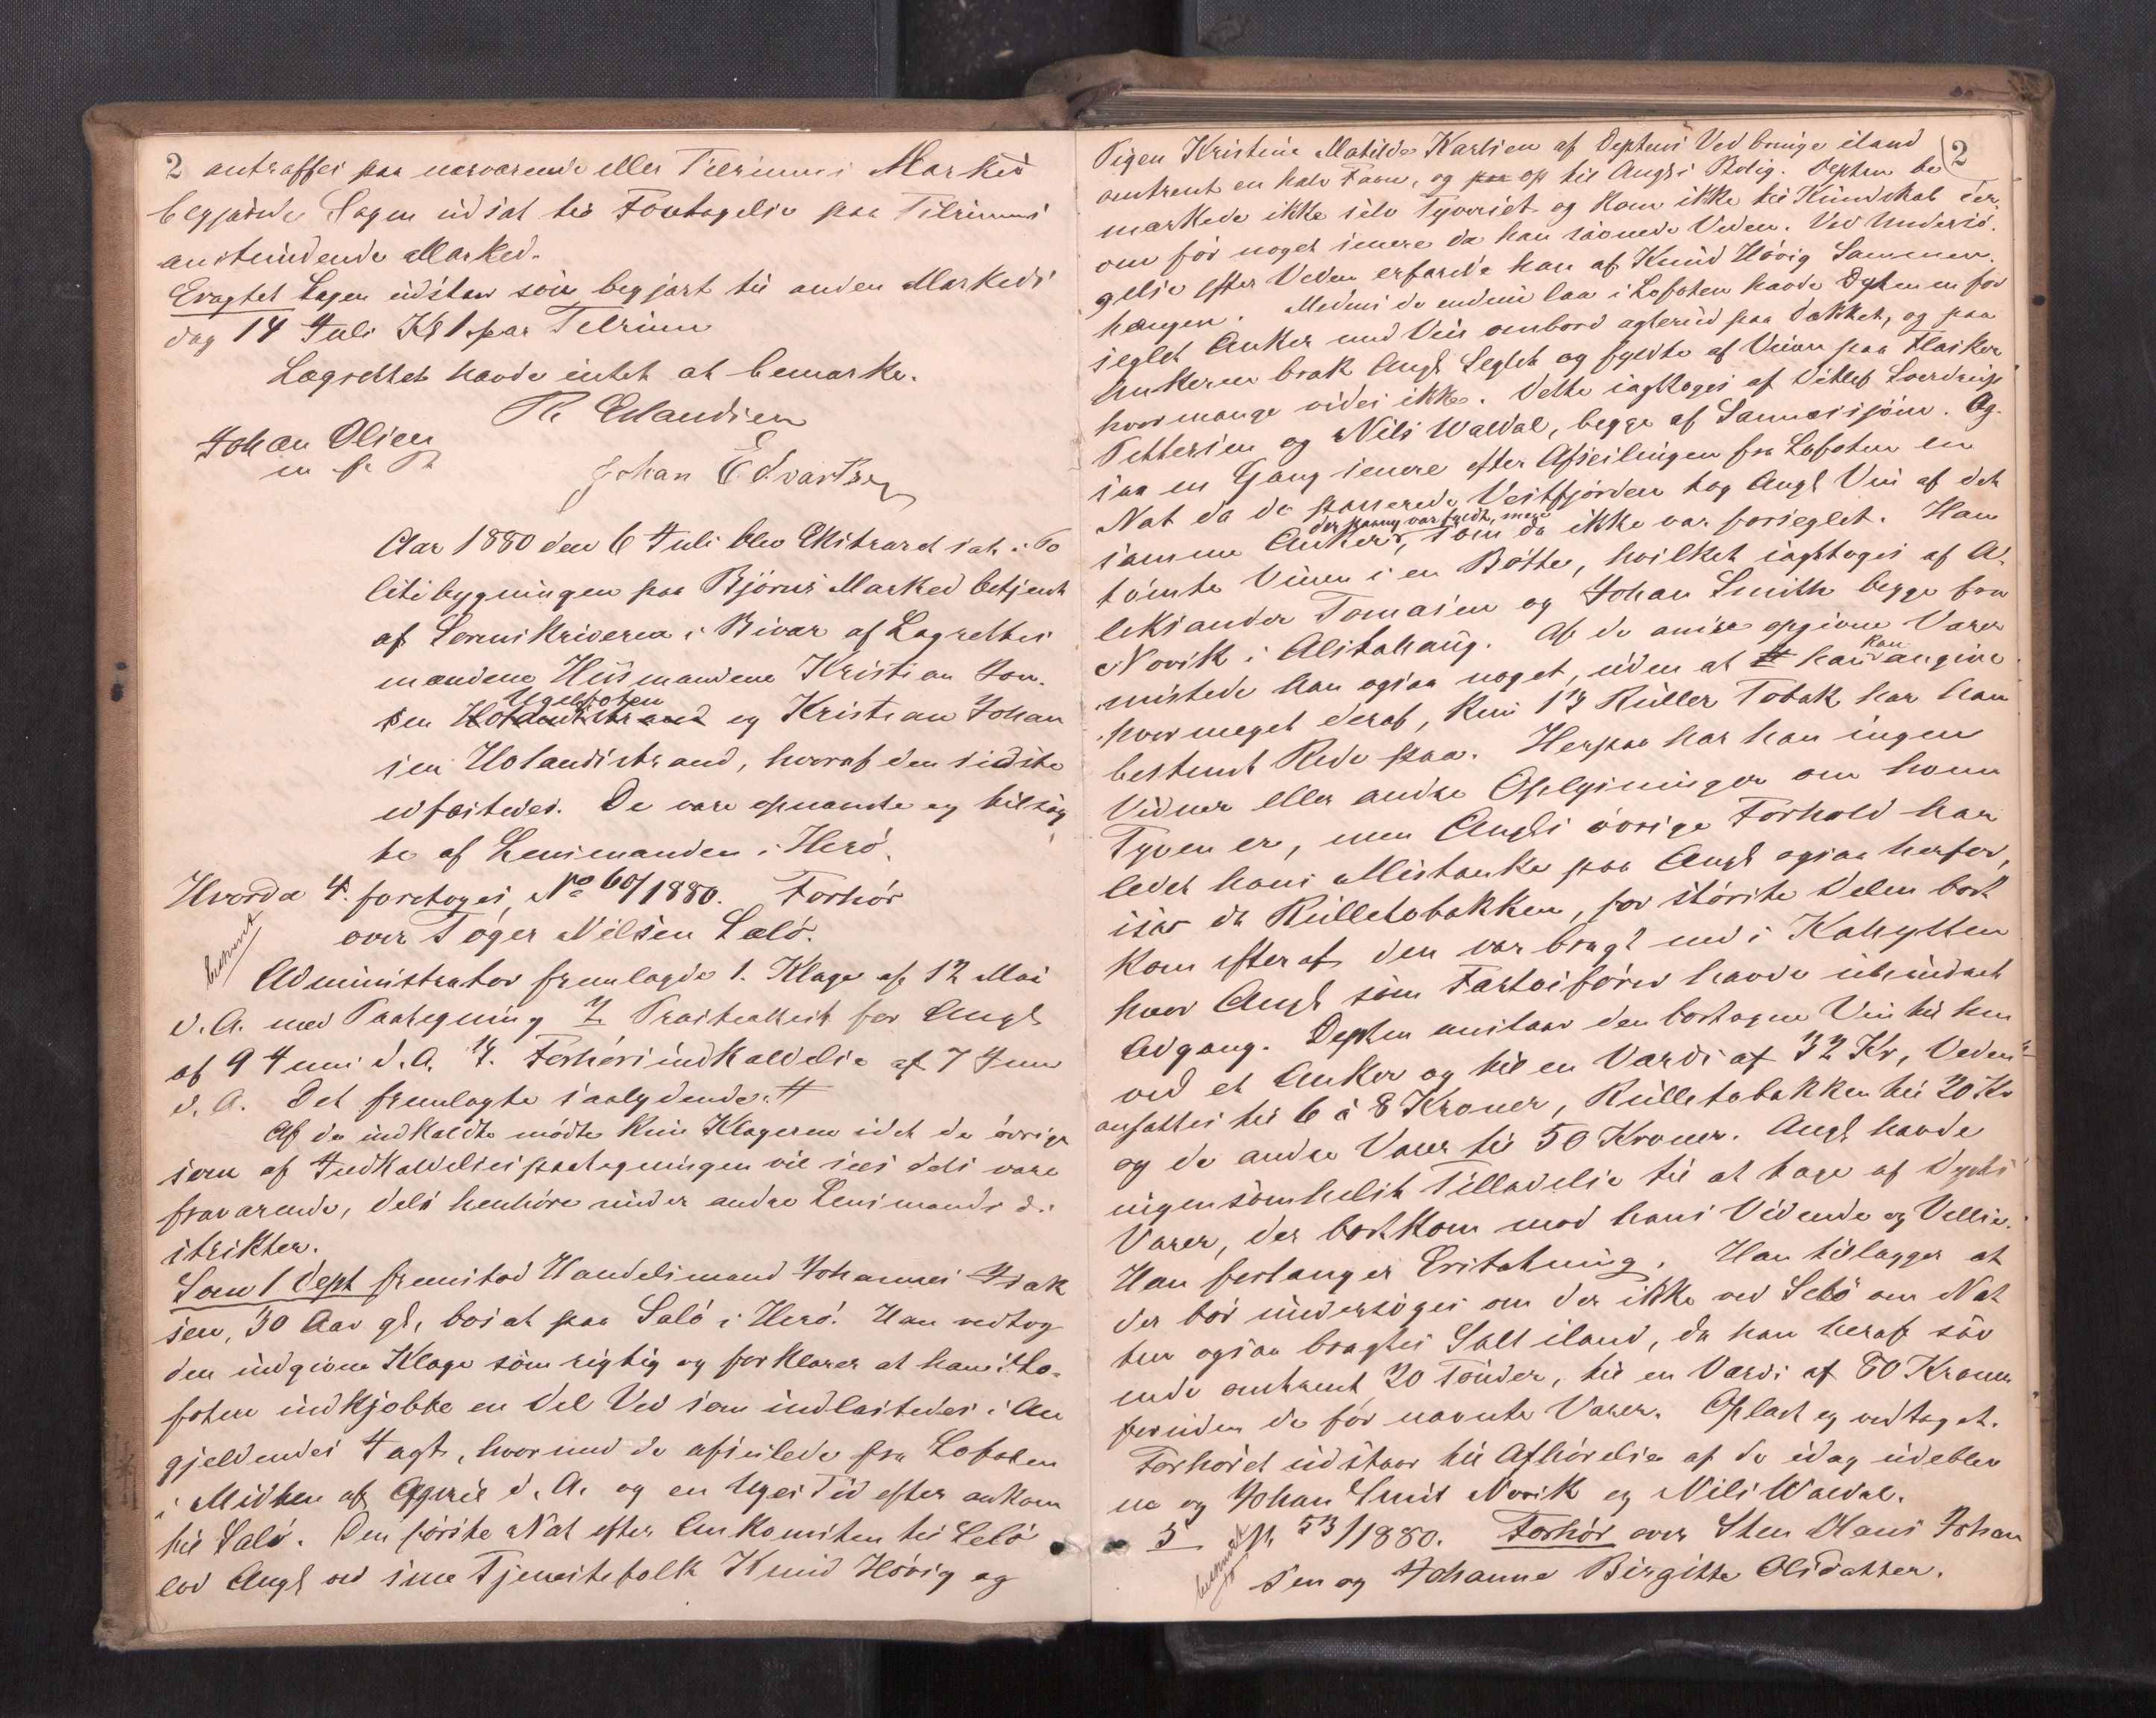 2 antraffes paa nærværende eller Tilrems Marked
begjærede Sagen udsat til Foretagelse paa Tilrems
anstundende Marked.
Eragtet Sagen udstaar som begjært til anden Markeds
dag 14 Juli Kl 1 paa Tilrem
Lagrettet havde intet at bemærke.
Erlandsen
Johan Olsen
m f P
Johan Edvartsen
Aar 1880 den 6 Juli blev Ekstraret sat i Po
litibygningen paa Bjørns Marked betjent
af Sorenskriveren i Bivær af Lagrettes
mændene Husmændene Kristian Jon
sen Holandstrand og Kristian Johan
sen Holandstrand, hvoraf den sidste
edfæstedes. De vare opnævnte og tilsag
te af Lensmanden i Herø.
Hvorda 4. foretoges, No 60/1880. Forhør
over Tøger Nilsen Salø.
Administrator fremlagde 1. Klage af 12 Mai
d. A. med Paategning 2 Præsteattest for Angl
af 9 Juni d. A. 3. Forhørsindkaldelse af 7 Juni
d. A. Det fremlagte saalydende #
Af de indkaldte mødte kun Klageren idet de øvrige
som af Indkaldelsespaategningen vil sees dels vare
fraværende, dels henhøre under andre Lensmands di
strikter.
Som 1 Dept fremstod Handelsmand Johannes Isak
sen, 30 Aar gl, bosat paa Salø i Herø. Han vedtog
den indgivne Klage som rigtig og forklarer at han i Lo-
foten indkjøbte en Del Ved som indlastedes i An
gjeldendes Jagt, hvormed de afseilede fra Lofoten
i Midten af April d. A. og en Uges Tid efter ankom
til Salø. Den første Nat efter Ankomsten til Selø
lod Angl ved sine Tjenestefolk Knud Høvig og
Pigen Kristine Matilde Karlsen af Deptens Ved bringe iland
2
omtrent en halv Favn, og paa op til Angls Bolig. Depten be
mærkede ikke selv Tyveriet og kom ikke til Kundskab der
om før noget senere da han savnede Veden. Ved Undersø-
gelse efter Veden erfarede han af Knud Høvig Sammen-
hængen. Medens de endnu laa i Lofoten havde Depten en for
seglet Anker med Vin ombord agterud paa Dækket, og paa
Ankeren brak Angl Seglet og fyldte af Vinen paa Flasker
hvor mange vides ikke. Dette iagttoges af Ditlef Sverdrup
Pettersen og Nils Waldal, begge af Sannessjøen. Og-
saa en Gang senere efter Afseilingen fra Lofoten en
Nat da de passerede Vestfjorden tog Angl Vin af det
der paany var fyldt, men
samme Anker, som da ikke var forseglet. Han
tømte Vinen i en Bøtte, hvilket iagttoges af A-
leksander Tomasen og Johan Smith begge fra
Novik i Alstahaug. Af de andre opgivne Varer
kan
mistede han ogsaa noget, uden at han angive
hvormeget deraf, kun 13 Ruller Tobak har han
bestemt Rede paa. Herpaa har han ingen
Vidner eller andre Oplysninger om hvem
Tyven er, men Angls øvrige Forhold har
ledet hans Mistanke paa Angl ogsaa herfor,
især da Rulletobakken, for største Delen bort
kom efterat den var bragt ned i Kahytten
hvor Angl som Fartøifører havde uhindret
Adgang. Depten anslaar den borttagne Vin til hen
ved et Anker og til en Værdi af 32 Kr, Veden
ansættes til 6 à 8 Kroner, Rulletobakken til 20 Kr
og de andre Varer til 50 Kroner. Angl havde
ingensomhelst Tilladelse til at tage af Depts
Varer, der bortkom mod hans Vidende og Villie.
Han forlanger Erstatning. Han tillægger at
der bør undersøges om der ikke ved Selø om Nat
ten ogsaa bragtes Salt iland, da han heraf sav
nede omtrent 20 Tønder, til en Værdi af 80 Kroner
foruden de før nævnte Varer. Oplæst og vedtaget.
Forhøret udstaar til Afhørelse af de idag udeblev
ne og Johan Smit Novik og Nils Waldal.
5 No 53/1880. Forhør over Sten Hans Johan
sen og Johanne Birgitte Olsdatter.